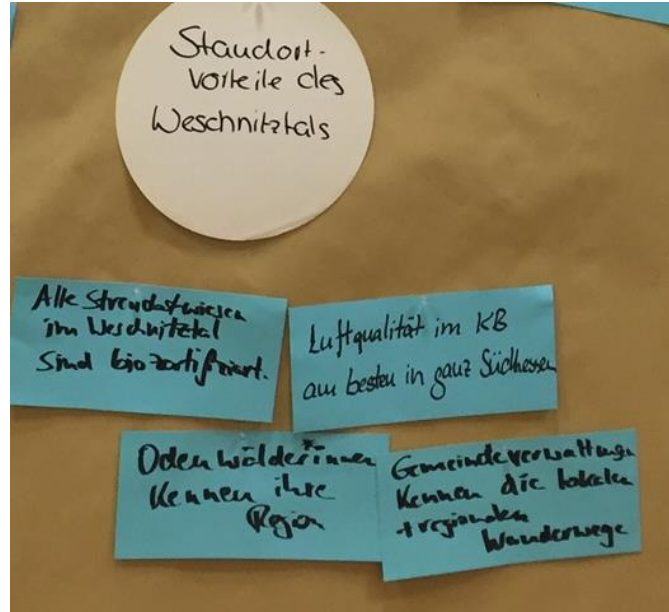 Standort-
vorteile des
Weschnitztals
Alle Streuobstwiesen
im Weschnitztal
sind biozertifiziert.
Luftqualität im KB
am besten in ganz Südhessen
Odenwälder*innen
kennen ihre
Region
Gemeindeverwaltungen
kennen die lokalen
+ regionalen
Wanderwege